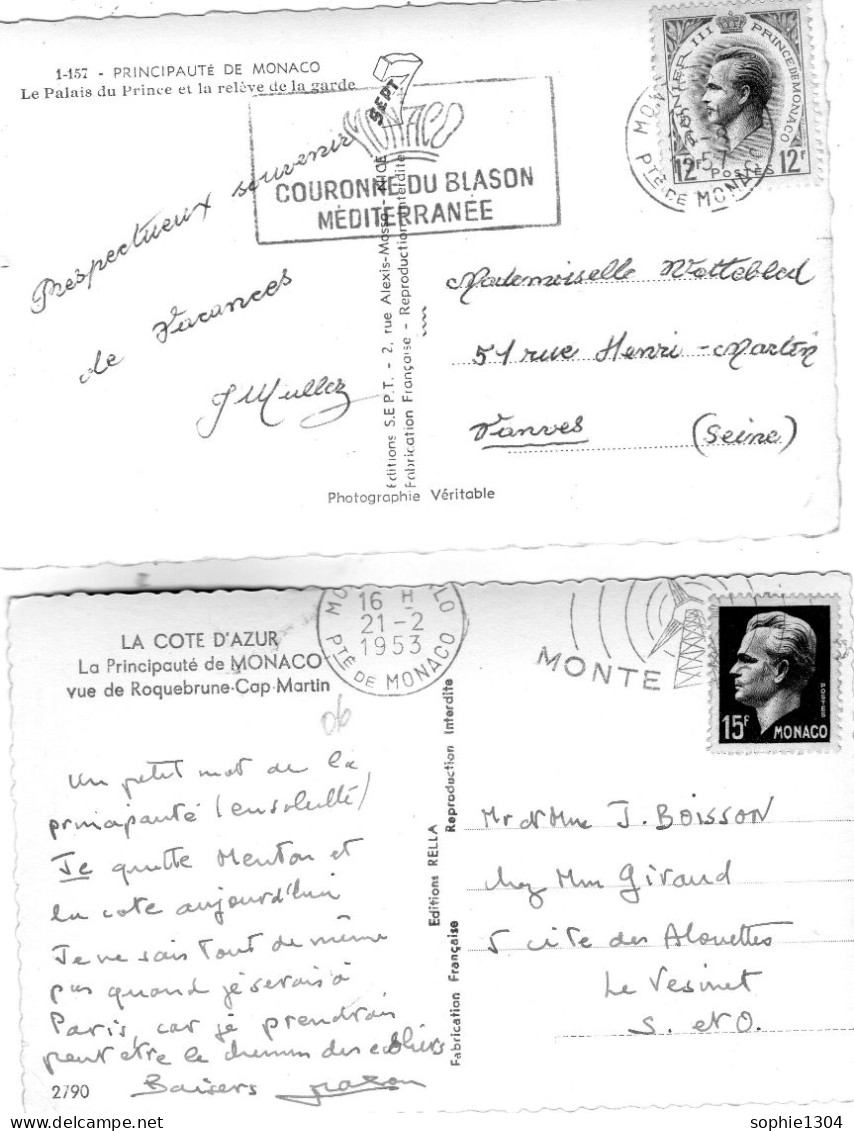 1-157 - PRINCIPAUTÉ DE MONACO
Le Palais du Prince et la relève de la garde
SEPT
MONACO
COURONNE DU BLASON
MÉDITERRANÉE
RAINIER III PRINCE DE MONACO
12F POSTES 12F
57
PTÉ DE MONACO
Respectueux souvenir
de Vacances
J Muller
Editions S.E.P.T. - 2, rue Alexis-Mossa - NICE
Fabrication Française - Reproduction Interdite
Mademoiselle Wattebled
51 rue Henri-Martin
Vanves (Seine)
Photographie Véritable
LA COTE D'AZUR
La Principauté de MONACO
vue de Roquebrune-Cap-Martin
16 H
21-2
1953
PTÉ DE MONACO
MONTE
POSTES
15F MONACO
06
Un petit mot de la
principauté (ensoleillé)
Je quitte Menton et
la cote aujourd'hui
Je ne sais tout de même
pas quand je serais à
Paris, car je prendrai
peut etre le chemin des
Baisers
2790
Editions RELLA
Fabrication Française Reproduction Interdite
Mr et Mme J. BOISSON
chez Mme Giraud
5 cite des Alouettes
Le Vesinet
S. et O.
sophie1304